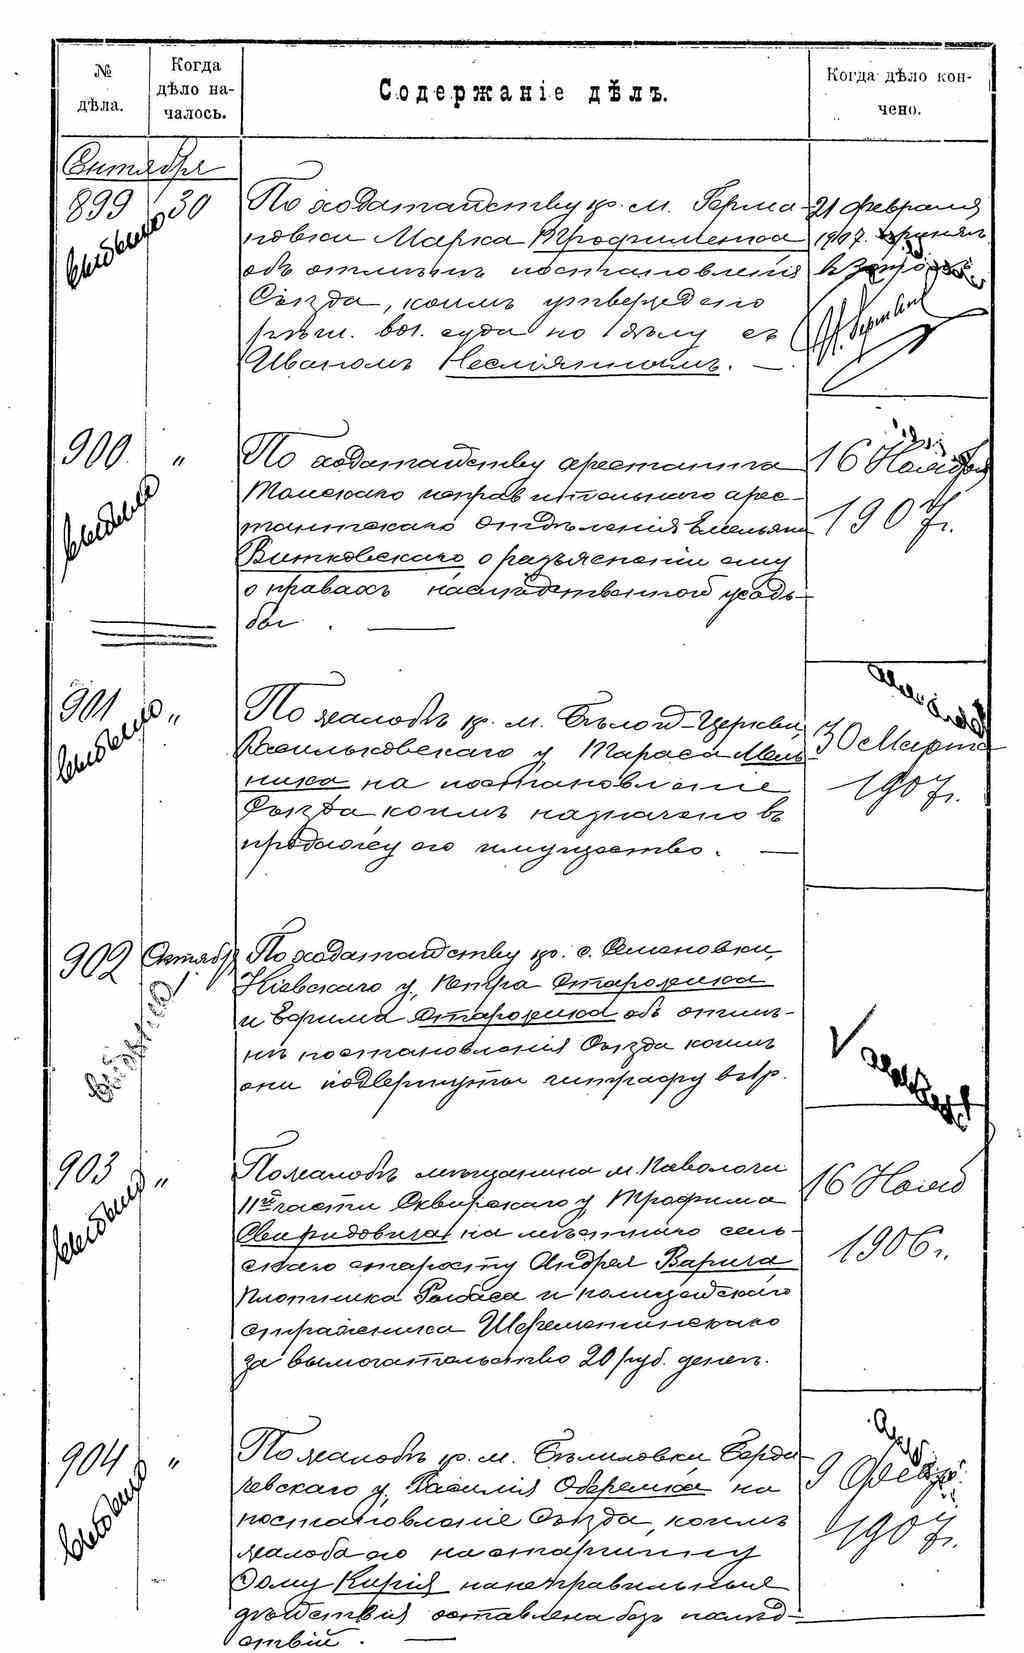 № дѣла.
Когда дѣло на-
чалось.
Содержаніе дѣлъ.
Когда дѣло кон-
чено.
Сентября
899
30
выбыло
По ходатайству кр. м. Герма-
новки Марка Трофименка
объ отмѣнѣ постановленія
Съѣзда, коимъ утверждено
рѣш. вол. суда по дѣлу съ
Иваномъ Неслѣяннымъ. —
21 февраля
1907.
900
"
выбыло
По ходатайству арестанта
Томскаго исправительнаго арес-
тантскаго отдѣленія Емельяна
Витковскаго о разъясненіи ему
о правахъ наслѣдственной усадь-
бы. —
16 Ноября
1907 г.
901
"
выбыло
По жалобѣ кр. м. Бѣлой-Церкви,
Васильковскаго у. Тараса Мель-
ника на постановленіе
Съѣзда коимъ назначено въ
продажу его имущество. —
30 Марта
1907 г.
902
Октябрь
1
выбыло
По ходатайству кр. с. Семеновки,
Кіевскаго у. Петра Старожика
и Ефима Старожика объ отмѣ-
нѣ постановленія Съѣзда коимъ
они подвергнуты штрафу въ 1 р.
903
"
выбыло
По жалобѣ мѣщанина м. Паволочи
II части Сквирскаго у. Трофима
Свиридовича на мѣстнаго сель-
скаго старосту Андрея Варича
Плотника Рыбаса и полицейскаго
стражника Шереметинскаго
за вымогательство 20 руб. денег.
16 Нояб
1906 г.
904
"
выбыло
По жалобѣ кр. м. Бѣлиловки Берди-
чевскаго у. Василія Оберемка на
постановленіе Съѣзда, коимъ
жалоба его на старшину
Фому Кирія на неправильныя
дѣйствія оставлена безъ послѣд-
ствій. —
9 Февр.
1907 г.